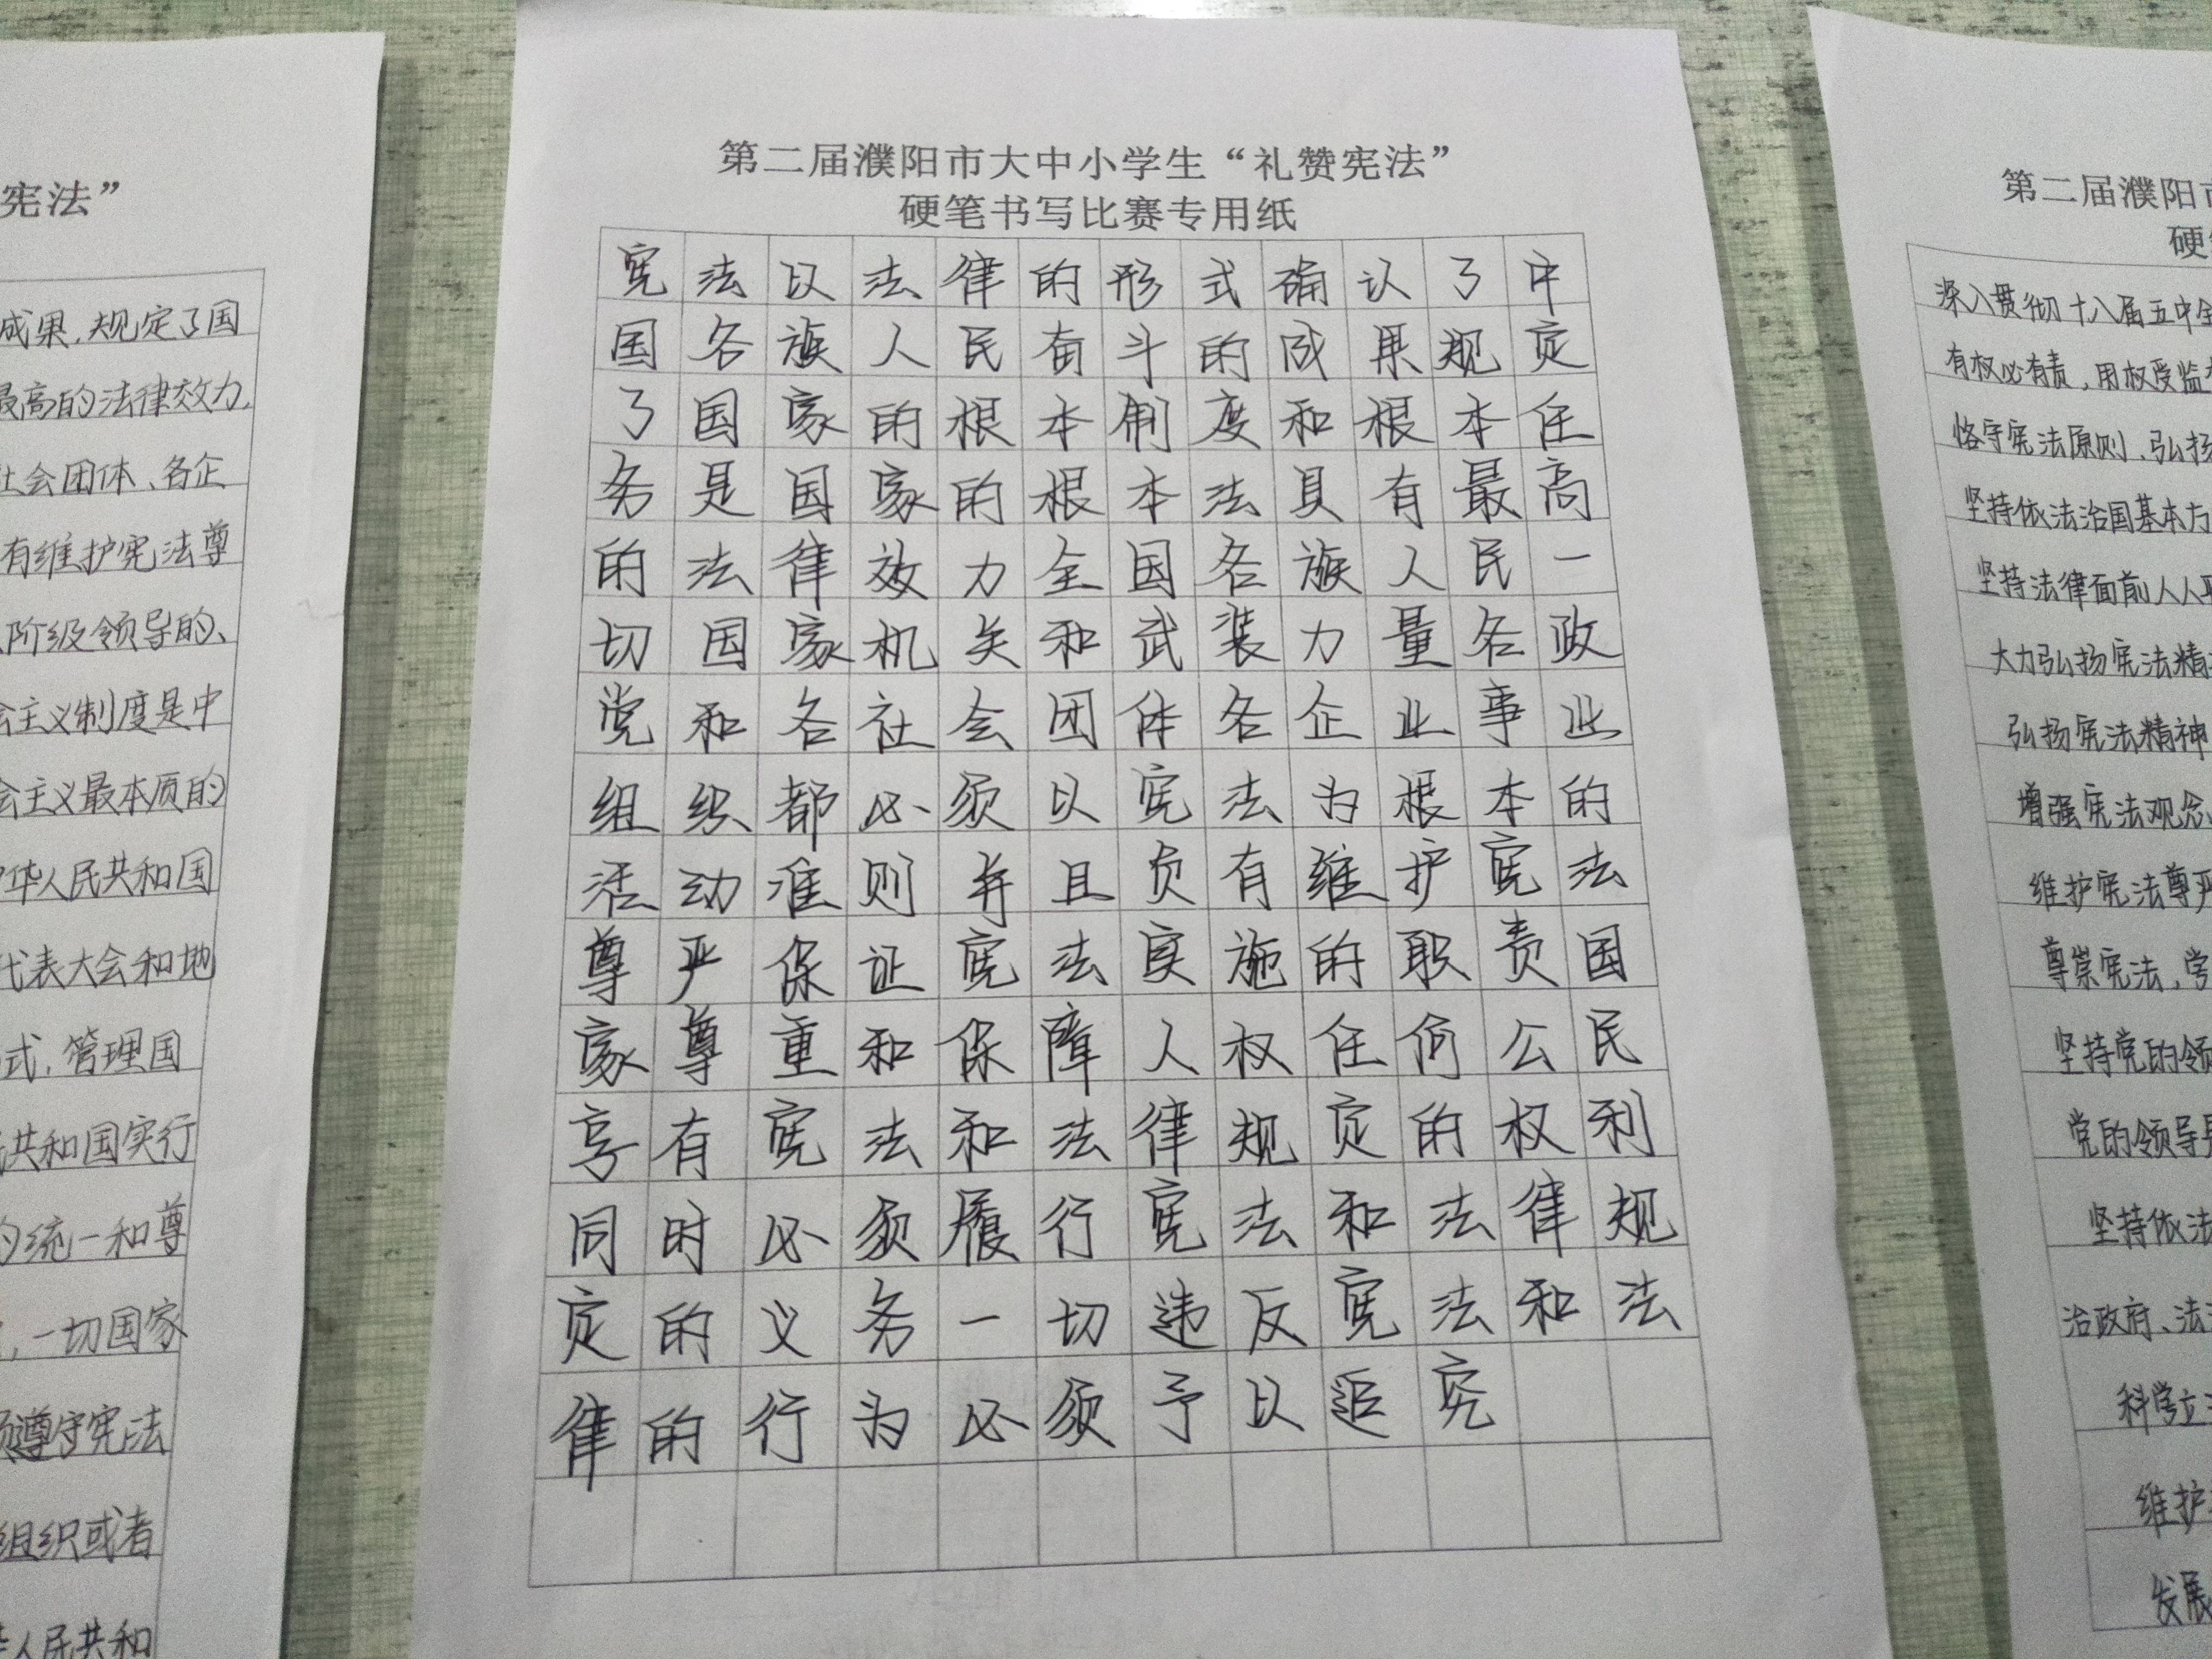 第二届濮阳市大中小学生“礼赞宪法”
硬笔书写比赛专用纸
宪法以法律的形式确认了中
国各族人民奋斗的成果规定
了国家的根本制度和根本任
务是国家的根本法具有最高
的法律效力全国各族人民一
切国家机关和武装力量各政
党和各社会团体各企业事业
组织都必须以宪法为根本的
活动准则并且负有维护宪法
尊严保证宪法实施的职责国
家尊重和保障人权任何公民
享有宪法和法律规定的权利
同时必须履行宪法和法律规
定的义务一切违反宪法和法
律的行为必须予以追究
宪法”
成果,规定了国
最高的法律效力,
社会团体、各企
有维护宪法尊
阶级领导的、
会主义制度是中
会主义最本质的
华人民共和国
代表大会和地
式,管理国
共和国实行
的统一和尊
,一切国家
须遵守宪法
组织或者
人民共和
第二届濮阳市
硬
深入贯彻十八届五中全
有权必有责,用权受监
恪守宪法原则、弘扬
坚持依法治国基本方
坚持法律面前人人平
大力弘扬宪法精
弘扬宪法精神
增强宪法观念
维护宪法尊严
尊崇宪法,学
坚持党的领
党的领导是
坚持依法
治政府、法
科学立
维护
发展